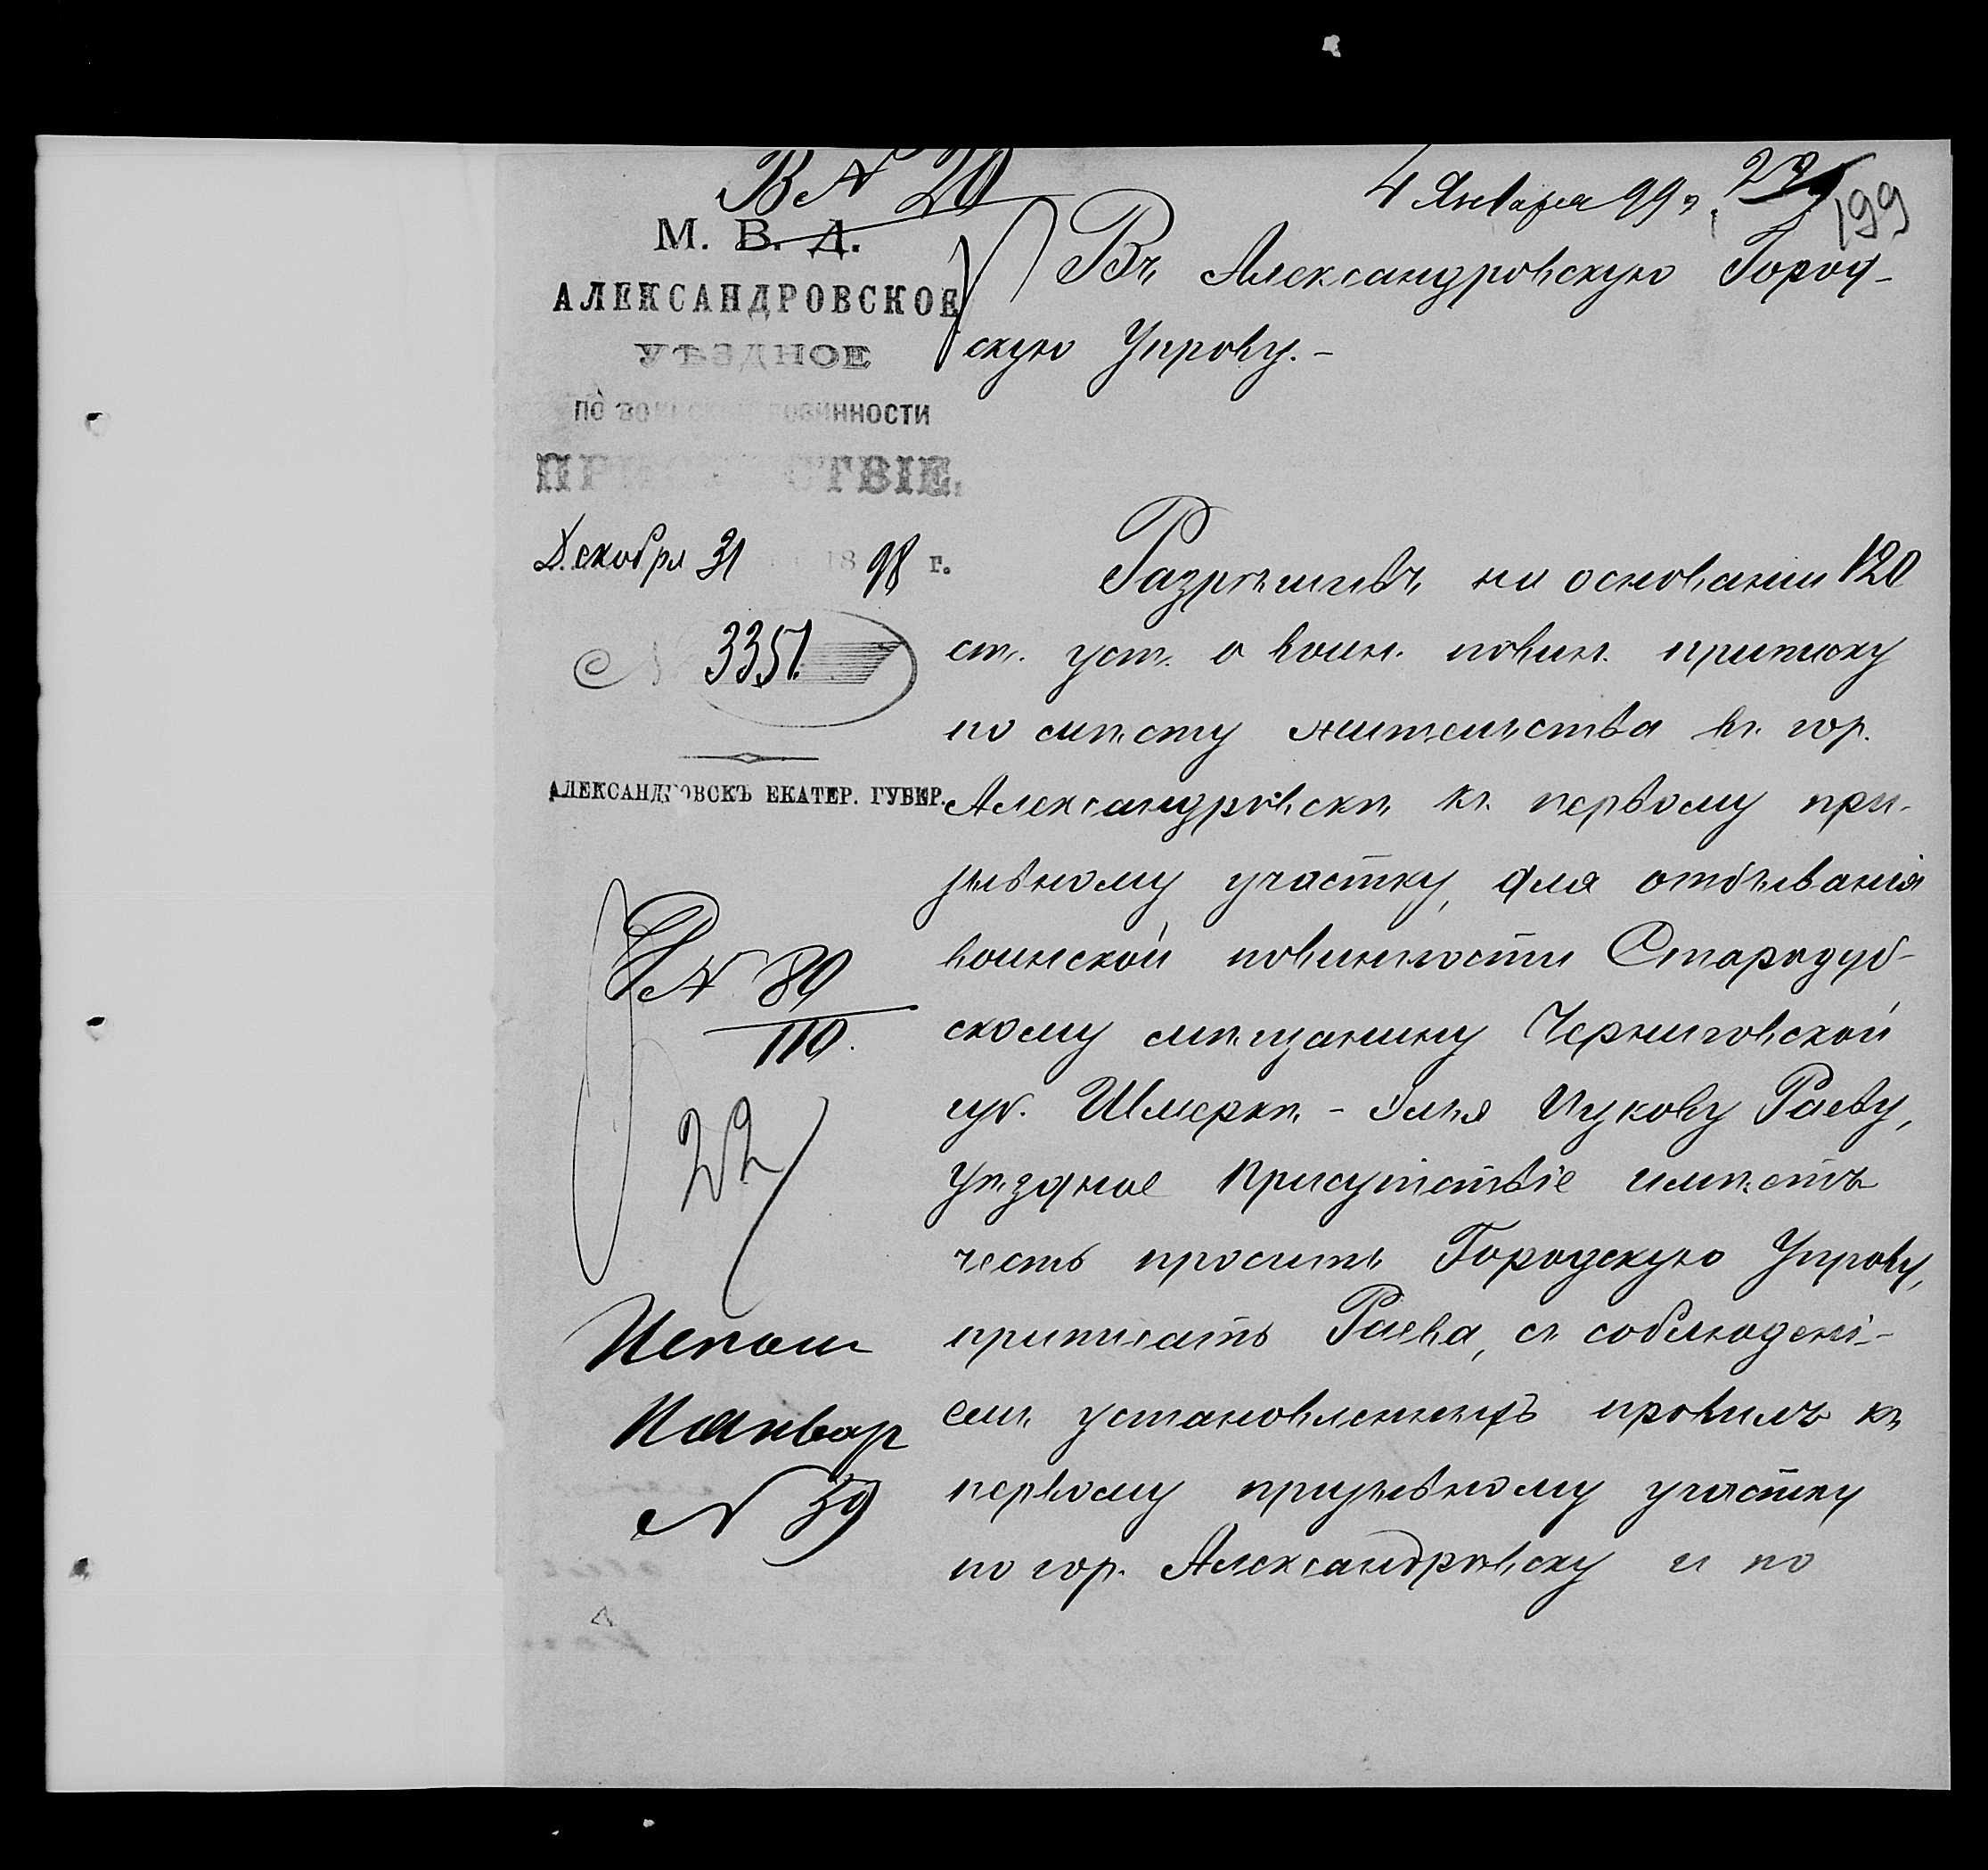 В № 20
4 Января 99 г.
199
М. В. Д.
АЛЕКСАНДРОВСКОЕ
УѢЗДНОЕ
по воинской повинности
ПРИСУТСТВІЕ.
Декабря 31 1898 г.
№ 3351.
АЛЕКСАНДРОВСКЪ ЕКАТЕР. ГУБЕР.
№ 80
110.
22
Январ
№ 39
Въ Александровскую Город-
скую Управу.-
Разрѣшивъ на основаніи 120
ст. уст. о воин. повин. приписку
по мѣсту жительства въ гор.
Александровскѣ къ первому при-
зывному участку, для отбыванія
воинской повинности Стародуб-
скому мѣщанину Черниговской
губ. Шмеркѣ - Ицкову Раеву,
Уѣздное Присутствіе имѣетъ
честь просить Городскую Управу,
приписать Раева, съ соблюдені-
емъ установленныхъ правилъ къ
первому призывному участку
по гор. Александровску и по